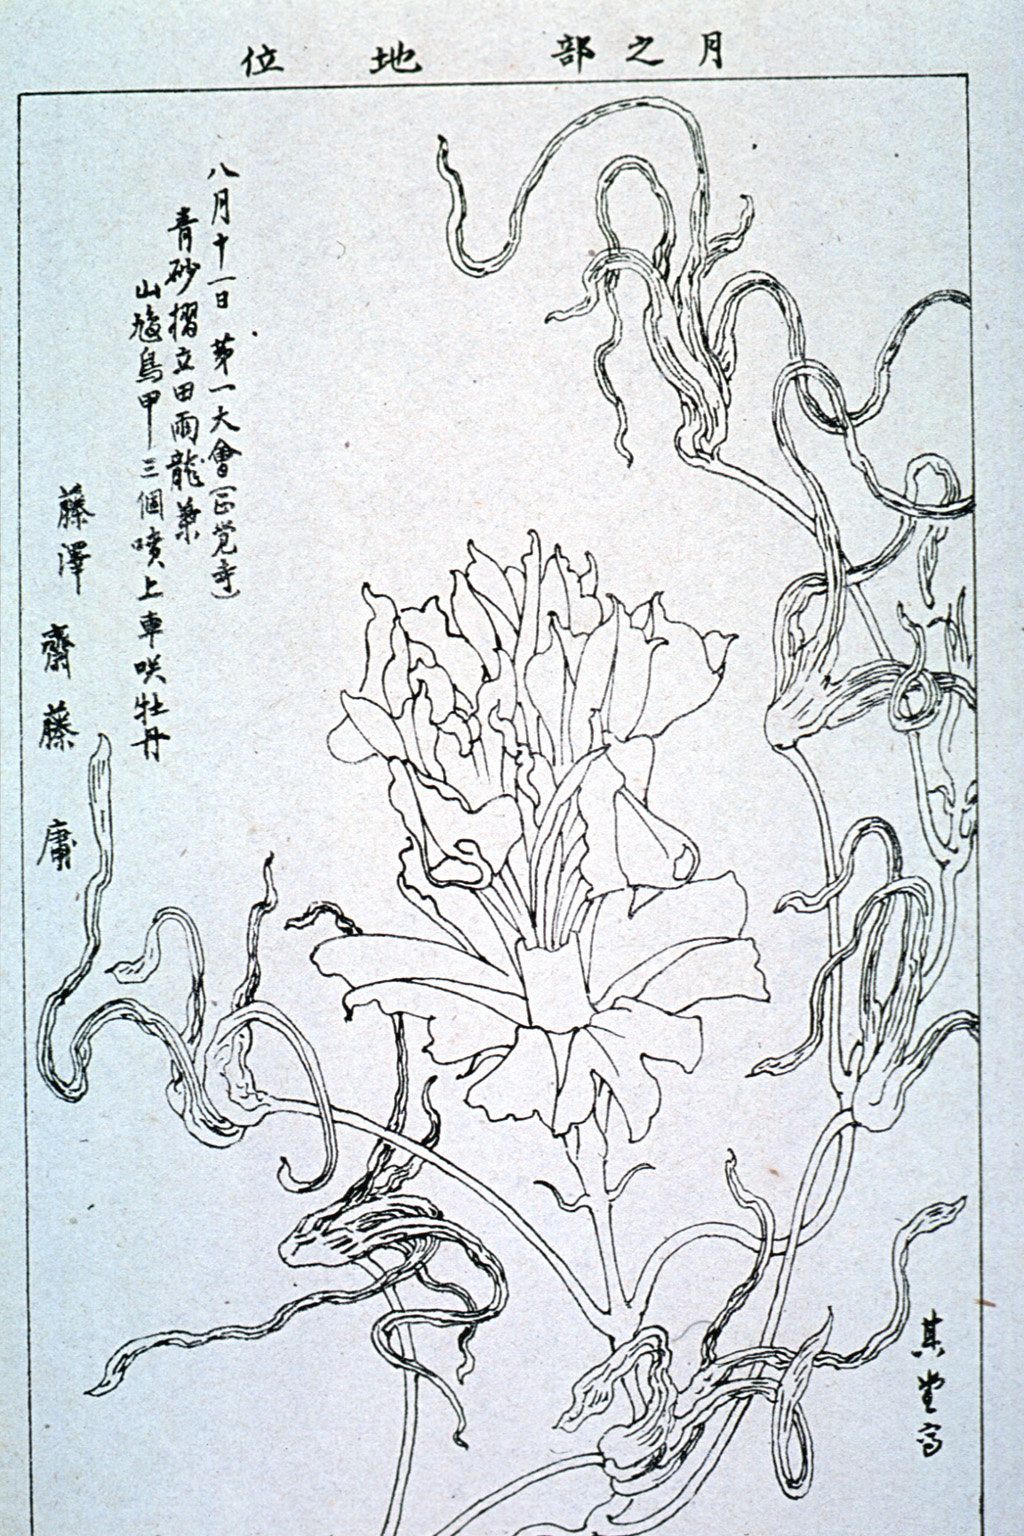 月之部 地位
八月十一日 第一大會(正覚寺)
青砂摺立田雨龍葉
山 鳥甲一三個噴上車咲牡丹
藤澤 齋藤 庸
其堂写